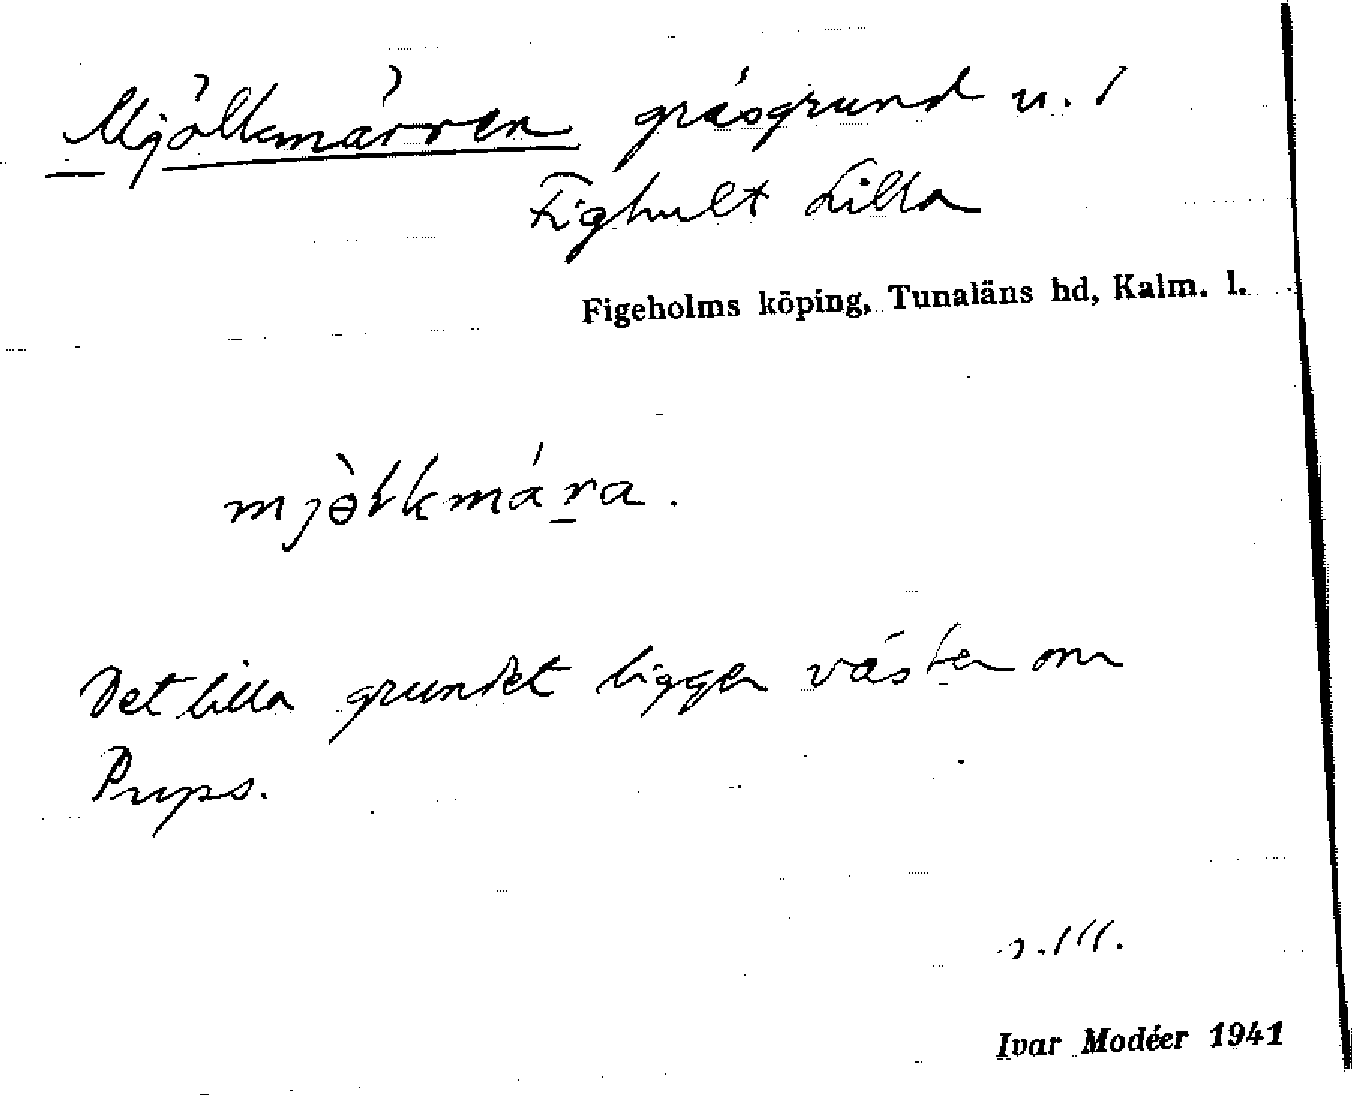 Mjölkmärren gräsgrund u. /
Fighult Lilla
Figeholms köping, Tunaläns hd, Kalm. l.
mjölkmára.
Det lilla grundet ligger väster om
Prups.
Ivar Modéer 1941